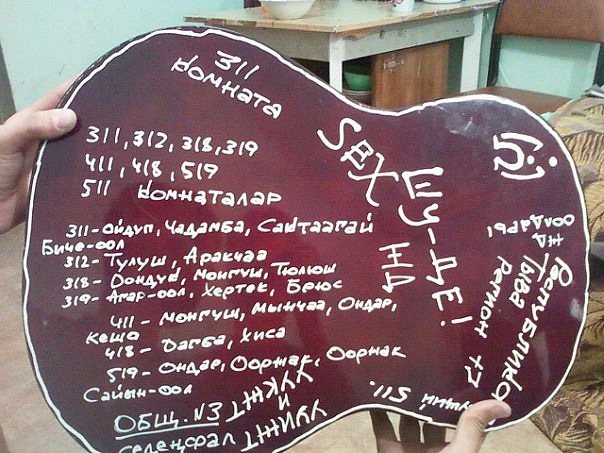 311
комната
311, 312, 318, 319
411, 418, 519
511 комнаталар
311-ойдуп, Чадамба, Сактаагай
Биче-оол
312- Тулуш, Аракчаа
318- Дондук, Монгуш, Тюлюш
319- Агар-оол, Хертек, Брюс
411 - Монгуш, Мынчаа, Ондар,
Кеша
418 - Дагба, Хиса
519- Ондар, Ооржак, Ооржак
Сайын-оол
ОБЩ. N3
селенфал
SEX
ШУ-ДЕ!
НД
оолдары
НД
Республика
Тыва
Регион 17
511.
и